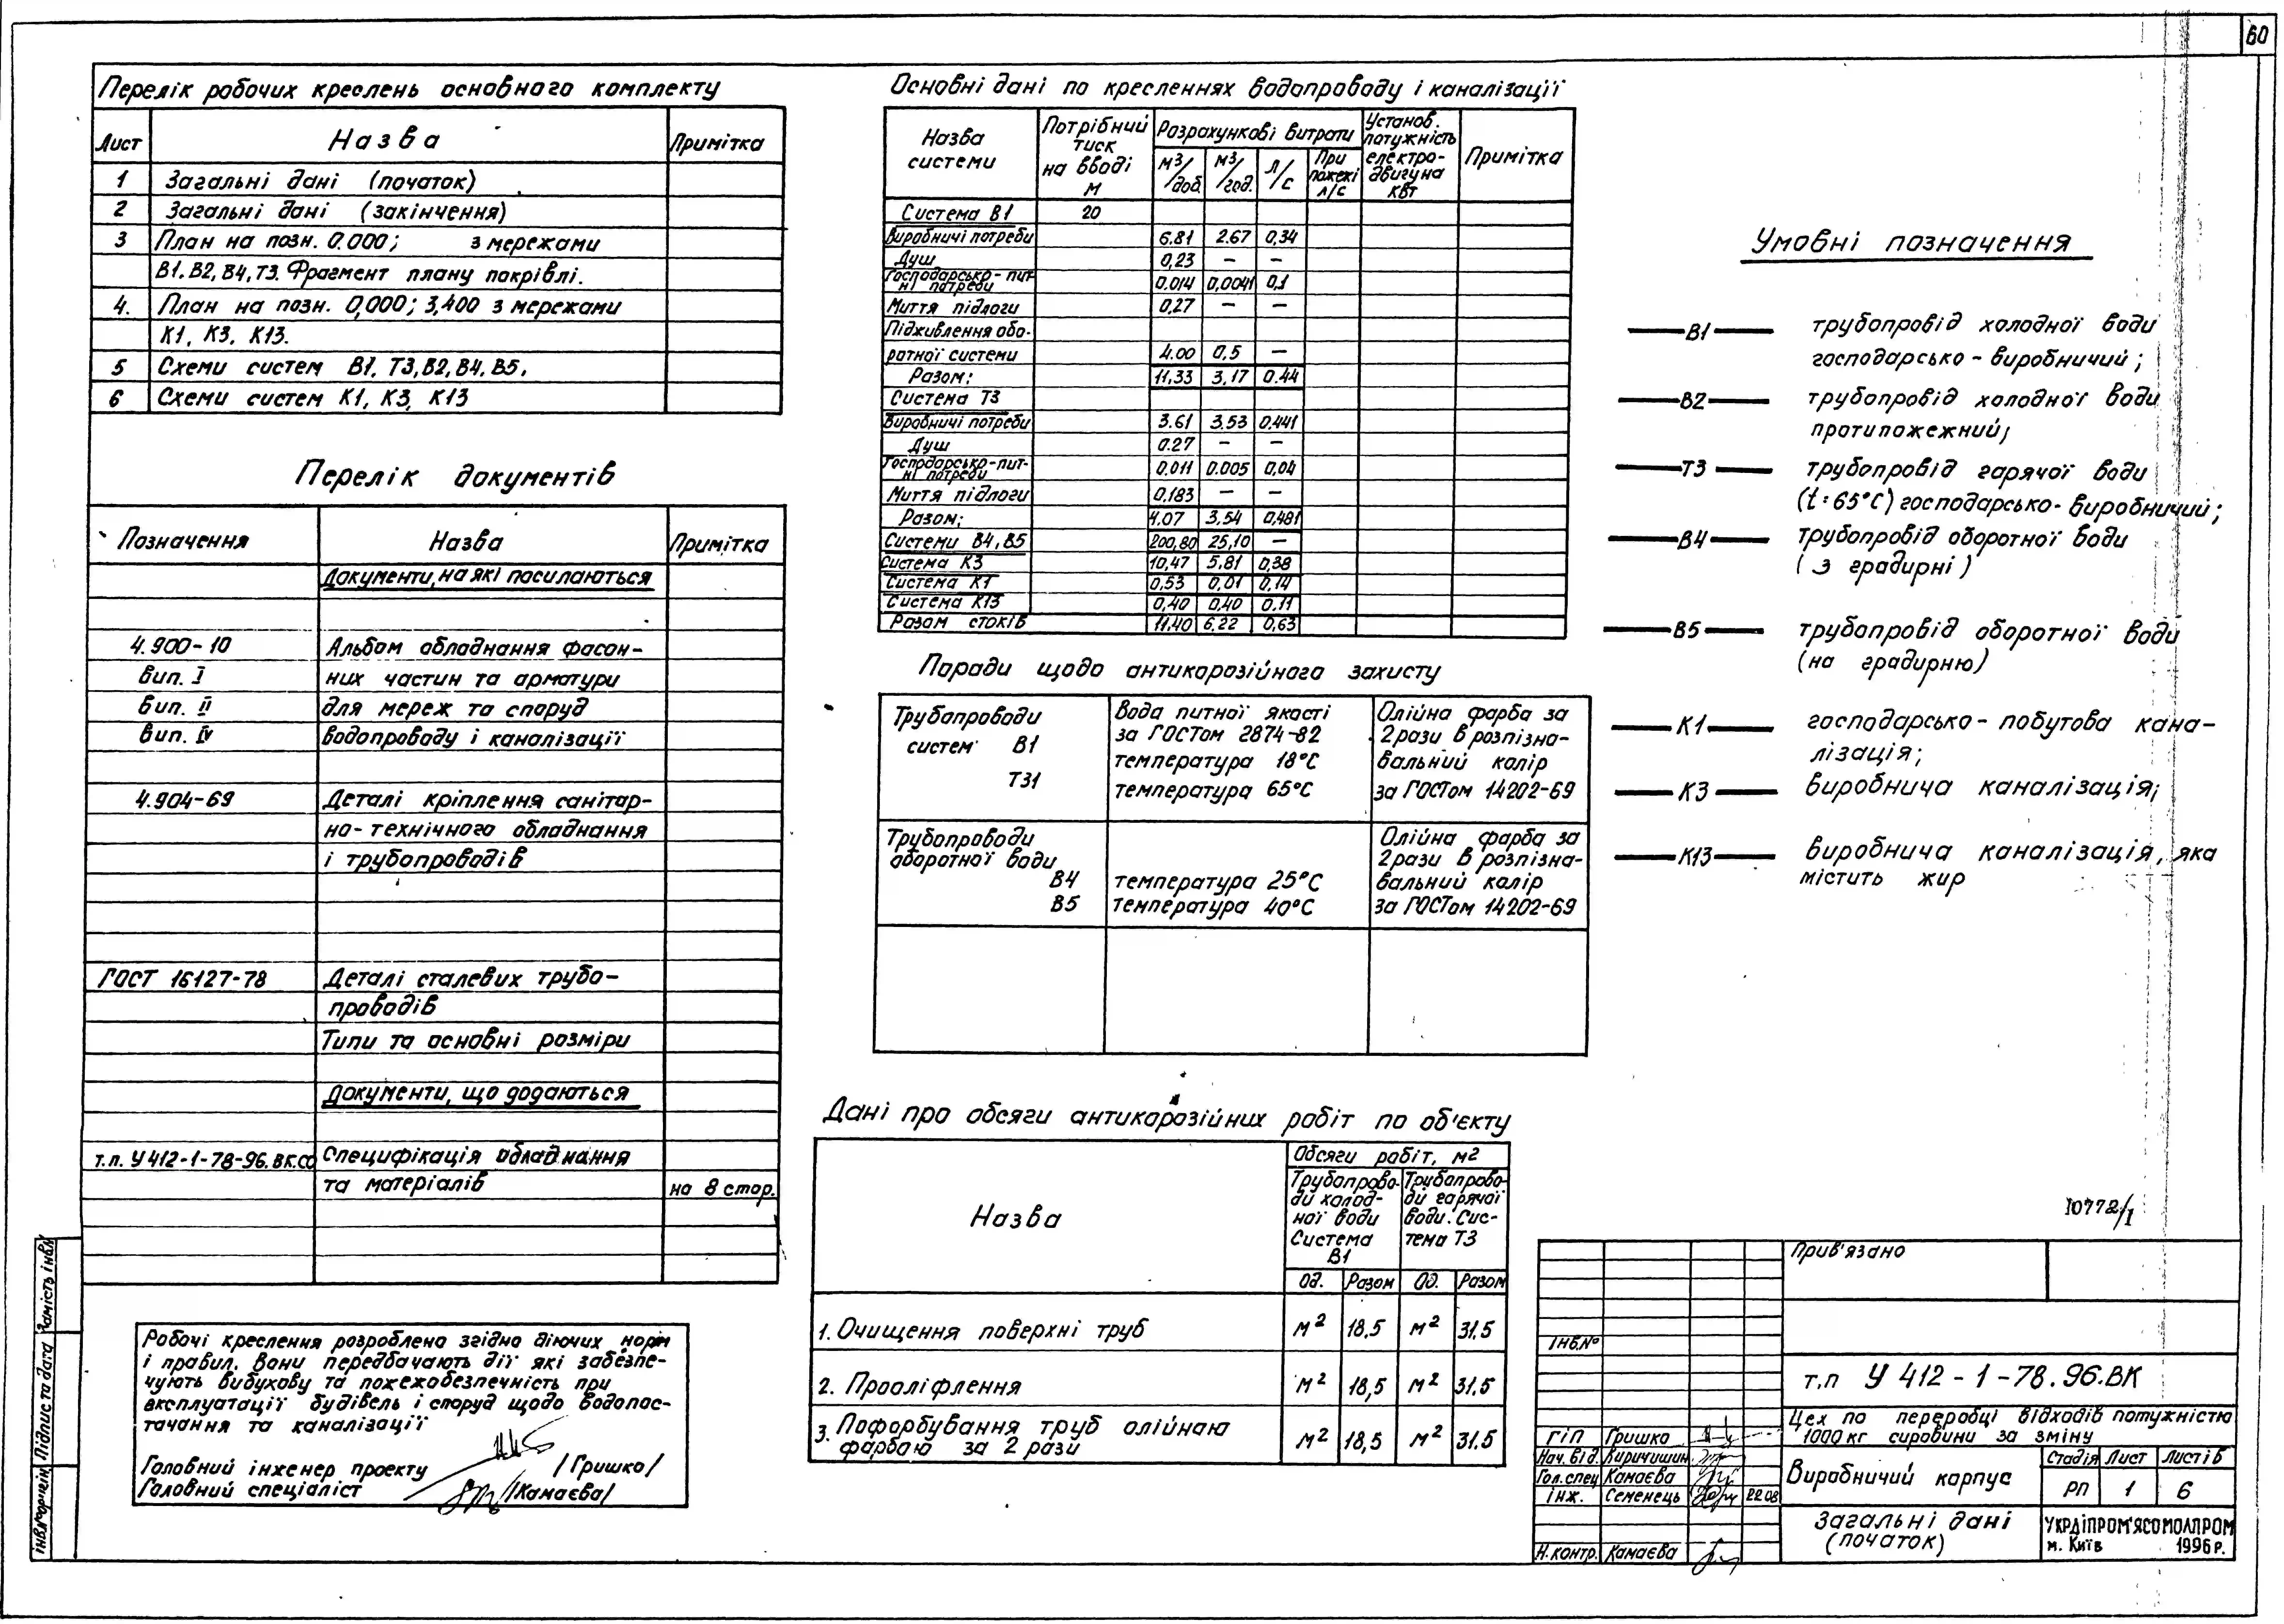 60
Перелік робочих креслень основного комплекту
Лист Назва Примітка
1 Загальні дані (початок)
2 Загальні дані (закінчення)
3 План на позн. 0.000; з мережами
В1, В2, В4, Т3. Фрагмент плану покрівлі.
4. План на позн. 0,000; 3,400 з мережами
К1, К3, К13.
5 Схеми систем В1, Т3, В2, В4, В5,
6 Схеми систем К1, К3, К13
Перелік документів
Позначення Назва Примітка
Документи, на які посилаються
4.900-10 Альбом обладнання фасон-
вип. I них частин та арматури
вип. II для мереж та споруд
вип. IV водопроводу і каналізації
4.904-69 Деталі кріплення санітар-
но-технічного обладнання
і трубопроводів
ГОСТ 16127-78 Деталі сталевих трубо-
проводів
Типи та основні розміри
Документи, що додаються
т.п. У 412-1-78-96. ВК.СО Специфікація обладнання
та матеріалів на 8 стор.
Робочі креслення розроблено згідно діючих норм
і правил. Вони передбачають дії які забезпе-
чують вибухову та пожежобезпечність при
експлуатації будівель і споруд щодо водопос-
тачання та каналізації
Головний інженер проекту /Гришко/
Головний спеціаліст /Камаєва/
Основні дані по кресленнях водопроводу і каналізації
Назва системи Потрібний тиск на вводі м Розрахункові витрати Установ. потужність електро-двигуна квт Примітка
м3/доб. м3/год. л/с При пожежі л/с
Система В1 20
Виробничі потреби 6.81 2.67 0,34
Душ 0,23 – –
Господарсько-пит-
ні потреби 0.014 0,0041 0,1
Миття підлоги 0,27 – –
Підживлення обо-
ротної системи 4.00 0,5 –
Разом: 11,33 3,17 0.44
Система Т3
Виробничі потреби 3.61 3.53 0.441
Душ 0.27 – –
Господарсько-пит-
ні потреби 0.011 0.005 0,04
Миття підлоги 0,183 – –
Разом: 4.07 3.54 0,481
Системи В4, В5 200,80 25,10 –
Система К3 10,47 5,81 0,38
Система К1 0,53 0,01 0,14
Система К13 0,40 0,40 0.11
Разом стоків 11.40 6.22 0,63
Поради щодо антикорозійного захисту
Трубопроводи Вода питної якості Олійна фарба за
систем В1 за ГОСТом 2874-82 2 рази в розпізна-
температура 18°С вальний колір
Т31 температура 65°С за ГОСТом 14202-69
Трубопроводи Олійна фарба за
оборотної води 2 рази в розпізна-
В4 температура 25°С вальний колір
В5 температура 40°С за ГОСТом 14202-69
Дані про обсяги антикорозійних робіт по об'єкту
Назва Обсяги робіт, м2
Трубопрово- Трубопрово-
ди холод- ди гарячої
ної води води. Сис-
Система тема Т3
В1
Од. Разом Од. Разом
1. Очищення поверхні труб м2 18,5 м2 31.5
2. Прооліфлення м2 18,5 м2 31.5
3. Пофарбування труб олійною
фарбою за 2 рази м2 18,5 м2 31.5
Умовні позначення
В1 трубопровід холодної води
господарсько-виробничий;
В2 трубопровід холодної води
протипожежний;
Т3 трубопровід гарячої води
(t:65°С) господарсько-виробничий;
В4 трубопровід оборотної води
(з градирні)
В5 трубопровід оборотної води
(на градирню)
К1 господарсько-побутова кана-
лізація;
К3 виробнича каналізація;
К13 виробнича каналізація, яка
містить жир
10772/1
Прив'язано
Інв.№
т.п У 412-1-78.96.ВК
Цех по переробці відходів потужністю
1000 кг сировини за зміну
ГІП Гришко
Нач. від.
Гол.спец Камаєва
інж. Семенець 22.08
Н.контр. Камаєва
Виробничий корпус
Стадія Лист Листів
РП 1 6
Загальні дані
(початок)
УКРДІПРОМ'ЯСОМОЛПРОМ
м. Київ 1996 р.
Замість інв.№
Підпис та дата